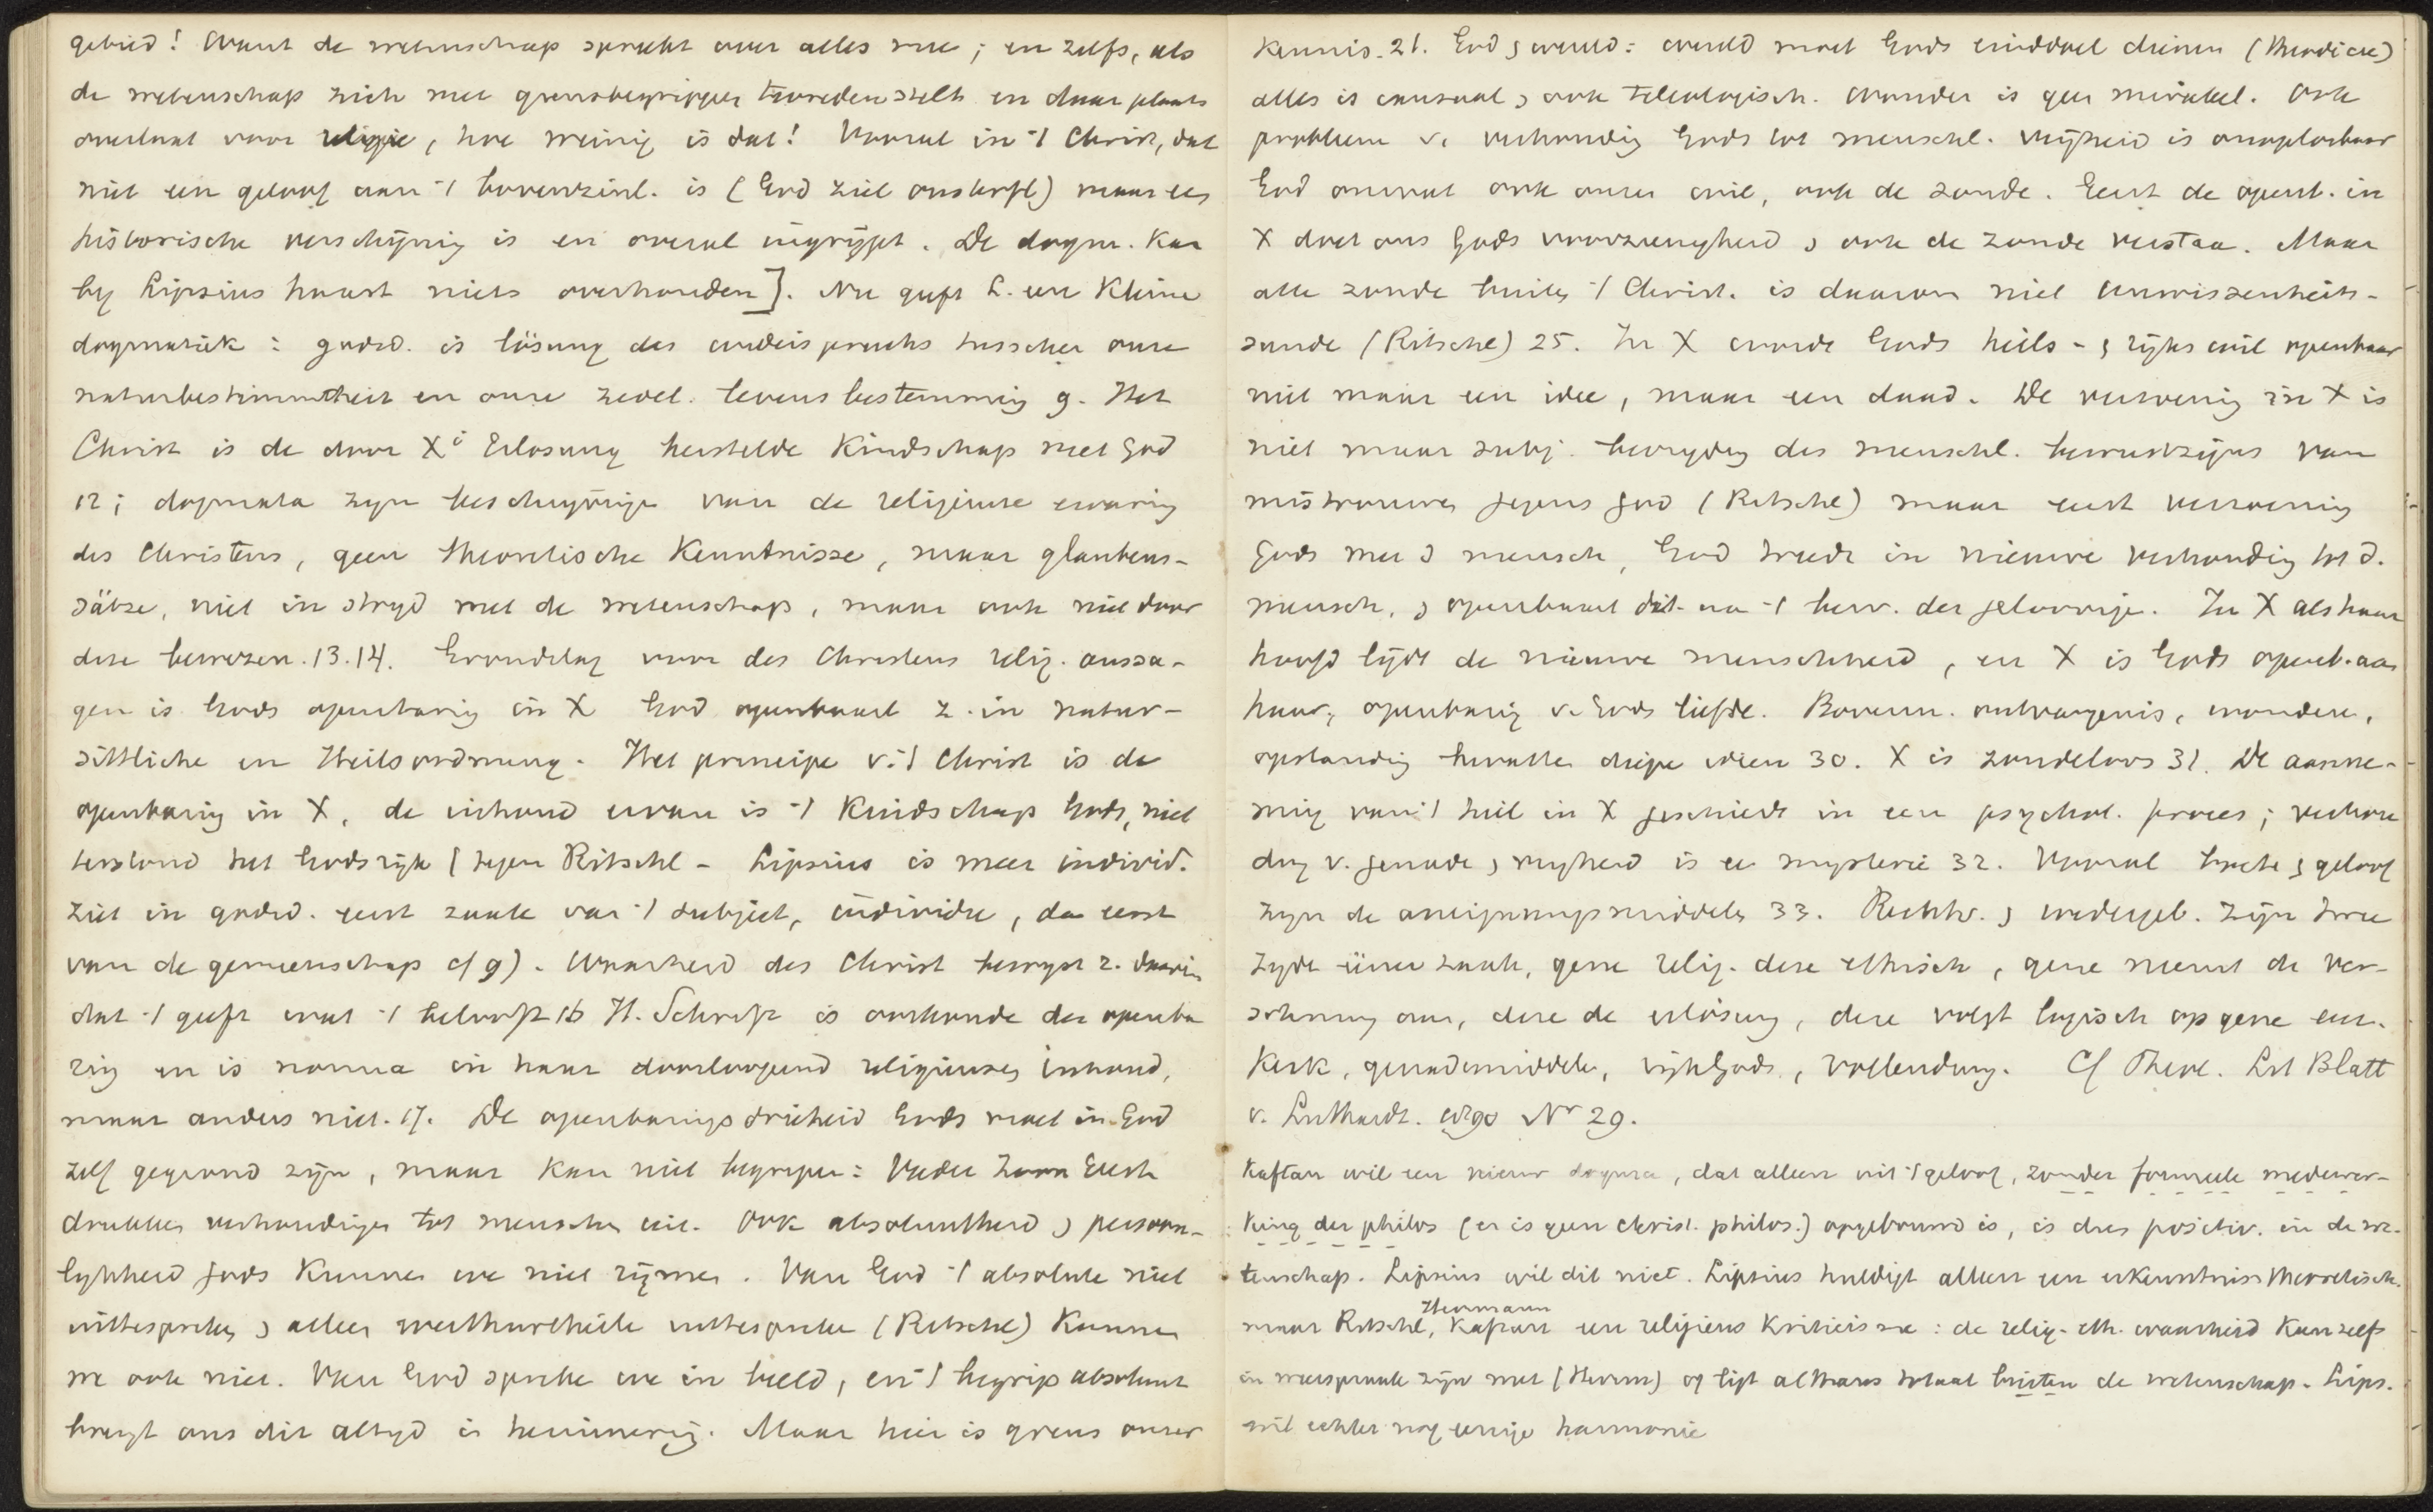 gebied! Want de wetenschap spreekt over alles mee; en zelfs, als
de wetenschap zich met grensbegrippen tevreden stelt en daar plaats
overlaat voor religie, hoe weinig is dat! Vooral in 't Christ, dat
niet een geloof aan 't bovenzinl. is (God ziel onsterfl) maar een
historische verschijning is en overal ingrijpt. De dogm. kan
by Lipsius haast niets overhouden]. Nu geeft L. een Kleine
dogmatiek: godsd. is lösung des widerspruchs tusschen onze
naturbestimmtheit en onze zedel. levensbestemming 9. Het
Christ is de door X' Erlösung herstelde Kindschap met God
12; dogmata zyn beschryvingen van de religieuse ervaring
des Christens, geen theoretische Kenntnisse, maar glaubens-
sätze, niet in stryd met de wetenschap, maar ook niet door
deze bewezen. 13.14. Grondslag voor des Christens relig. aussa-
gen is Gods openbaring in X God openbaart z. in natur-
sittliche en Heilsordnung. Het principe v. 't Christ is de
openbaring in X, de inhoud ervan is 't Kindschap Gods, niet
terstond het Godsryk (tegen Ritschl - Lipsius is meer individ.
ziet in godsd. eerst zaak van 't subject, individu, dan eerst
van de gemeenschap cf 9). Waarheid des Christ bewyst z. daarin
dat 't geeft wat 't belooft 16 H. Schrift is oorkonde der openba
ring en is norma in haar doorloopend religieuzen inhoud,
maar anders niet. 17. De openbaringsdrieheid Gods moet in God
zelf gegrond zijn, maar kan niet begrypen: Vader Zoon Geest
drukken verhoudingen tot menschen uit. Ook absoluutheid & persoon-
lykheid Gods kunnen we niet rijmen. Van God 't absolute niet
uittespreken & alleen werthurtheile uittespreken (Ritschl) kunnen
we ook niet. Van God spreken we in beeld, en 't begrip absoluut
brengt ons dit altyd in herinnering. Maar hier is grens onzer
Kennis. 21. God & wereld: wereld moet Gods einddoel dienen (Theodicee)
alles is causaal & ook teleologisch. Wonder is geen mirakel. Ook
probleem v. verhouding Gods tot menschl. vrijheid is onoplosbaar
God omvat ook onzen wil, ook de zonde. Eerst de openb. in
X doet ons Gods voorzienigheid & ook de zonde verstaan. Maar
alle zonde buiten 't Christ. is daarom niet Unwissenheits-
sunde (Ritschl) 25. In X wordt Gods heils- & ryks wil openbaar
niet maar een idee, maar een daad. De verzoening in X is
niet maar subj. bevryding des menschl. bewustzijns van
mistrouwen jegens God (Ritschl) maar eerst verzoening
Gods met d mensch, God treedt in nieuwe verhouding tot d.
mensch, & openbaart dit aan 't bew. der geloovige. In X als haar
hoofd lijdt de nieuwe menschheid, en X is Gods openb. aan
haar, openbaring v. Gods liefde. Bovenn. ontvangenis, wonderen,
opstanding bevatten diepe ideen 30. X is zondeloos 31. De aanne-
ming van 't heil in X geschiedt in een psychol. proces; verhou
ding v. genade & vryheid is een mysterie 32. Vooral boete & geloof
zyn de aneignungsmiddelen 33. Rechtv. & wedergeb. zijn twee
zyden éener zaak, gene relig. deze ethisch, gene neemt de Ver-
söhnung aan, deze de erlösung, deze volgt logisch op gene eer.
Kerk, genademiddelen, rijk Gods, vollendung. Cf Theol. Lit Blatt
v. Luthardt. 1890 No 29.
Kaftan wil een nieuw dogma, dat alleen uit 't geloof, zonder formeele medewer-
king der philos (er is geen christ. philos.) opgebouwd is, is dus positiv. in de we-
tenschap. Lipsius wil dit niet. Lipsius huldigt alleen een erkenntniss theoretisch.
Herrmann
maar Ritschl, Kaftan een religieus Kriticisme: de relig.-eth. waarheid kan zelfs
in weerspraak zijn met (Herrm) of ligt althans totaal buiten de wetenschap. Lips.
wil echter nog eenige harmonie